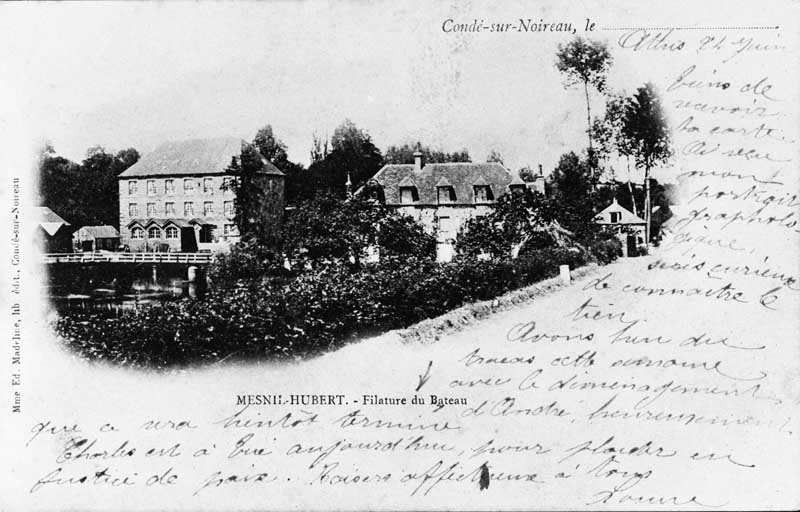 Condé-sur-Noireau, le
Athis 24 Juin
Viens de
recevoir
ta carte.
Ai reçu
mon
portrait
grapholo
gique,
suis curieuse
de connaître le
tien
Avons bien du
tracas cette semaine
avec le déménagement
d'André, heureusement
que ce sera bientôt terminé
Charles est à Vire aujourd'hui, pour plaider en
justice de paix. Baisers affectueux à tous
Louise
MESNIL-HUBERT. - Filature du Bateau
Mme Ed. Madeline, lib. édit., Condé-sur-Noireau